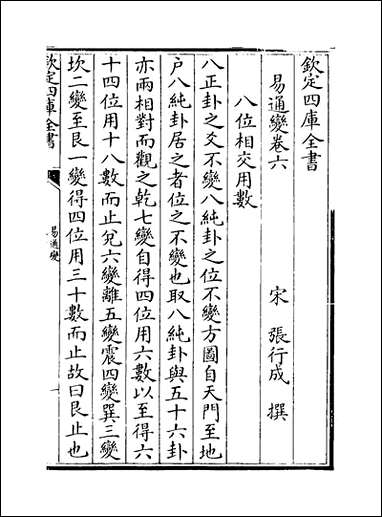 欽定四庫全書
易通變卷六
宋　張行成　撰
八位相交用數
八正卦之爻不變八純卦之位不變方圖自天門至地
户八純卦居之者位之不變也取八純卦與五十六卦
亦兩相對而觀之乾七變自得四位用六數以至得六
十四位用十八數而止兌六變離五變震四變巽三變
坎二變至艮一變得四位用三十數而止故曰艮止也
欽定四庫全書
易通變